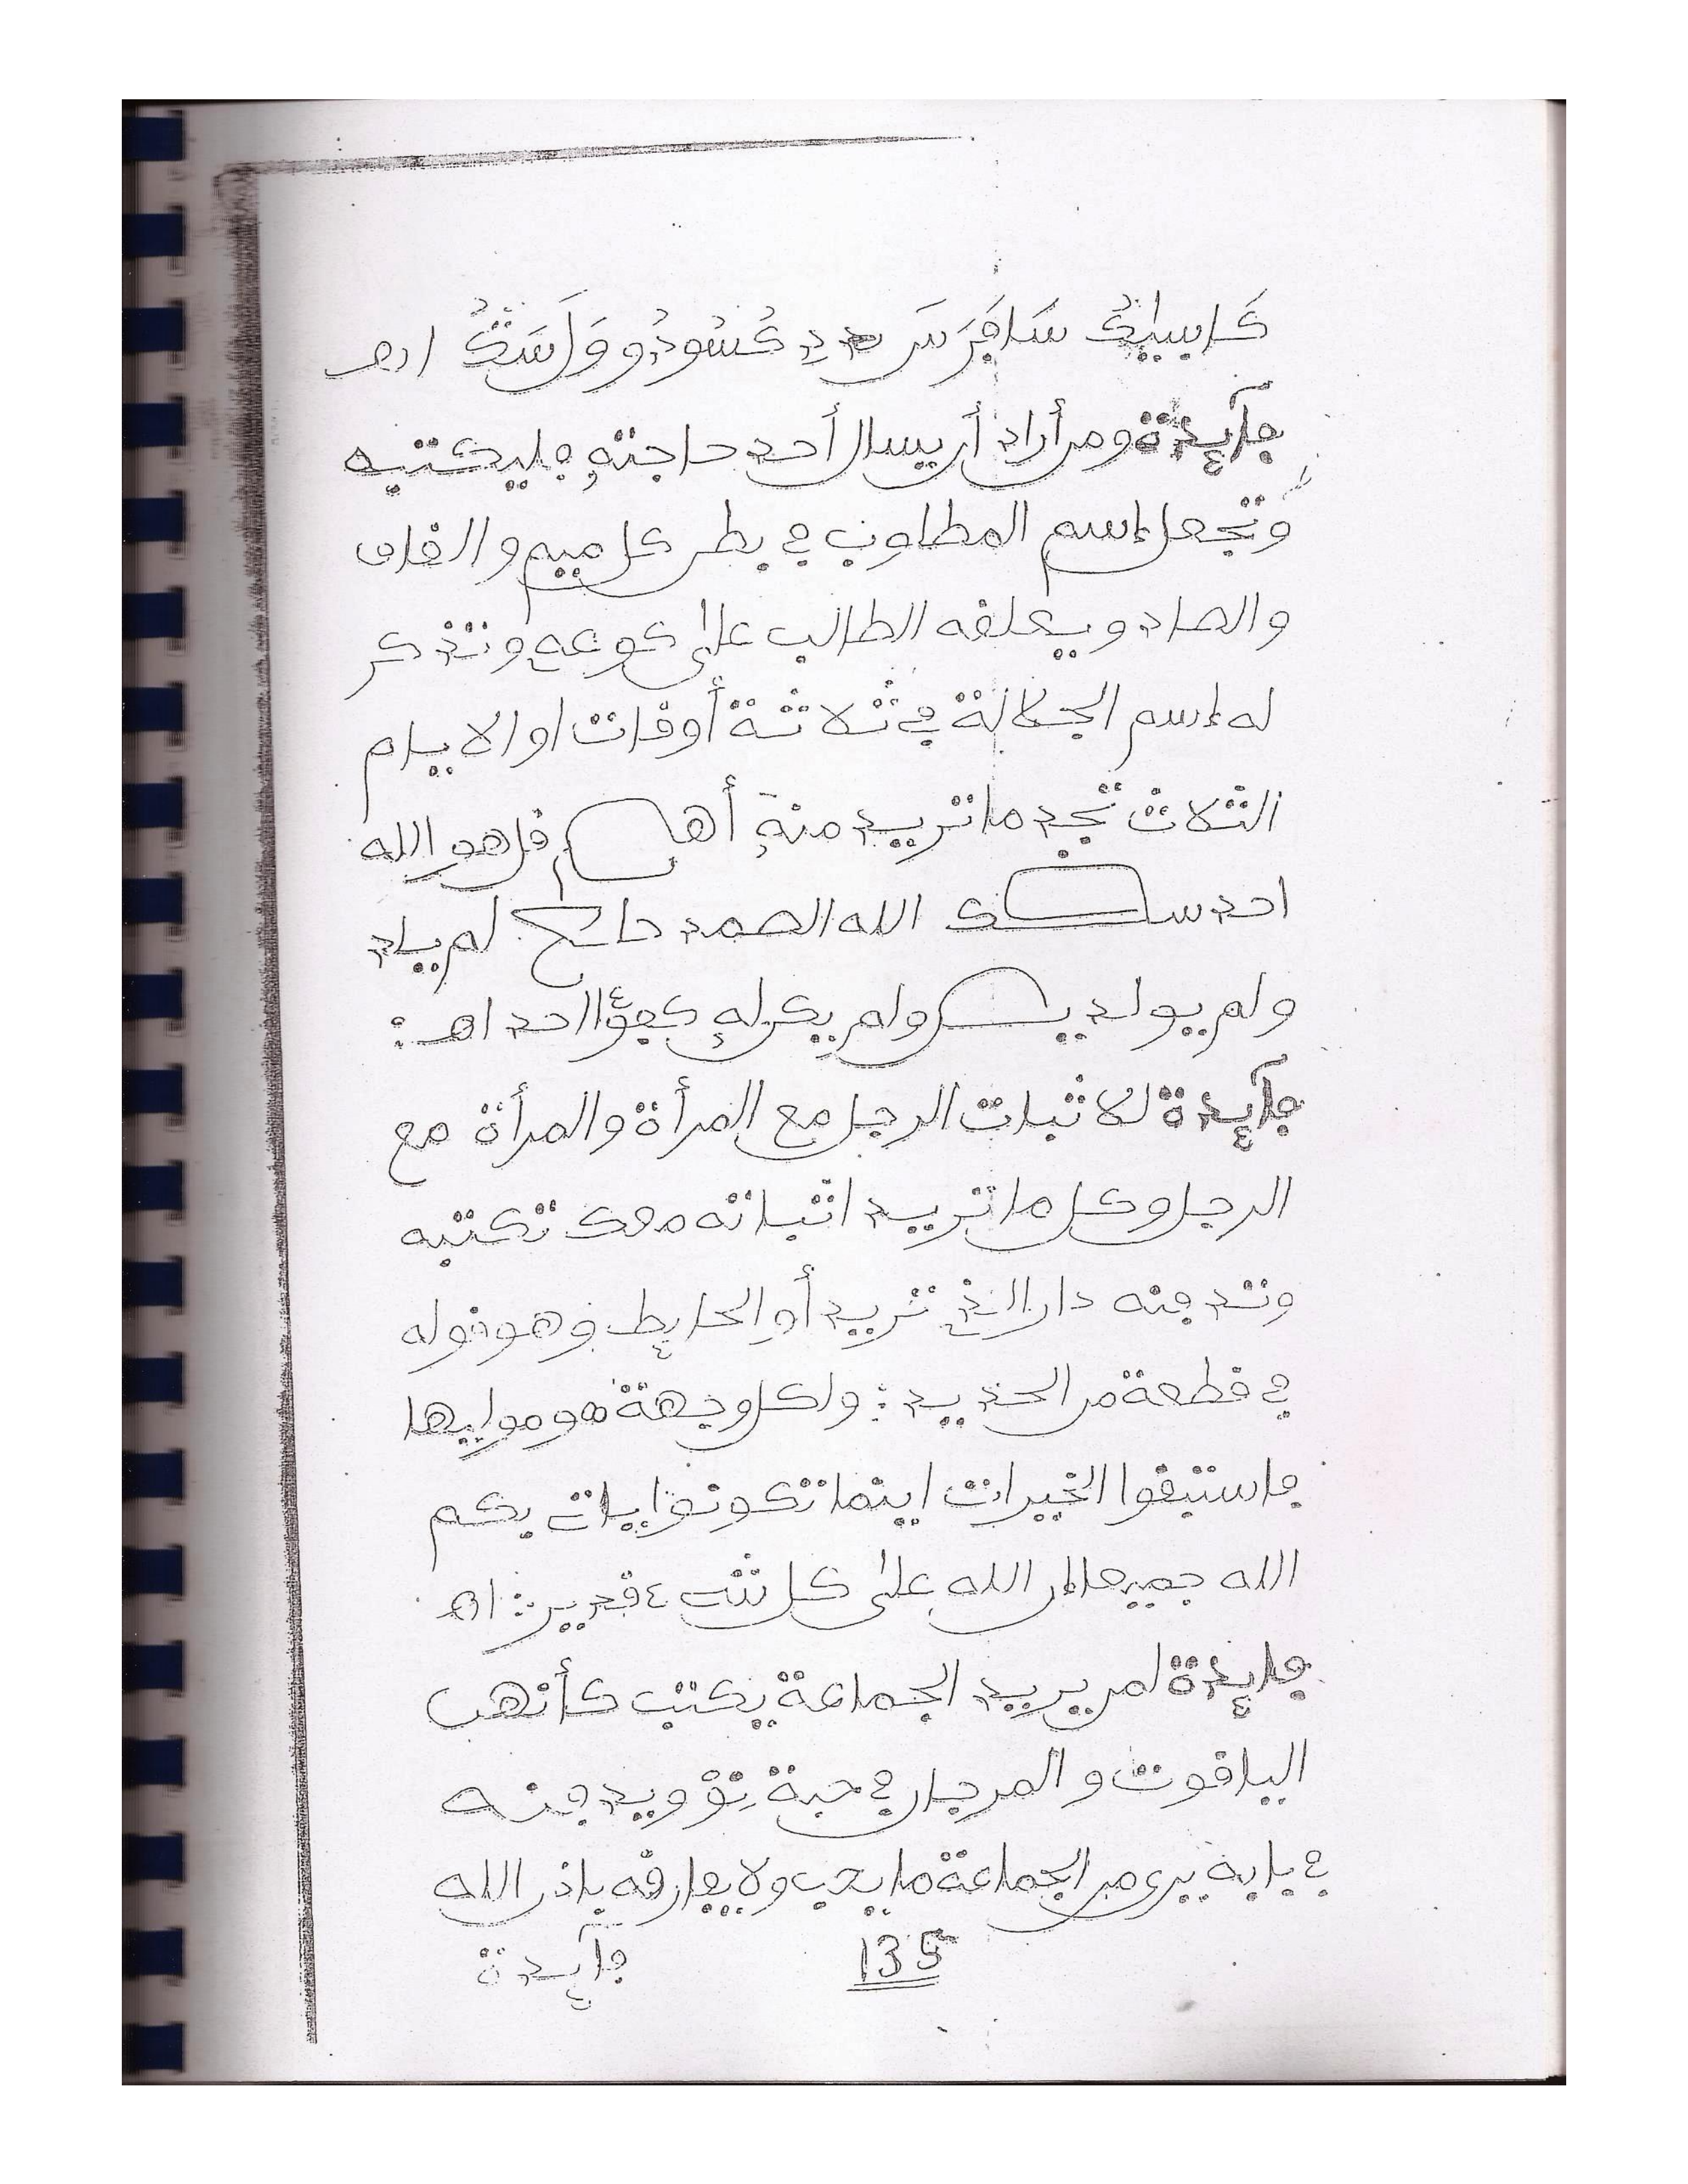 فآيدة ومن أراد أن يسال أحد حاجته فليكتبه
وتجعل إسم المطلوب في بطن كل ميم والقاف
والصاد ويعلقه الطالب على كوعه وتذكر
له إسم الجلالة في ثلاثة أوقات او الايام
الثلاث تجد ما تريد منه أهـ م قل هو الله
احد الله الصمد لم يلد
ولم يولد ولم يكن له كفؤا احد اهـ :
فآيدة للاثبات الرجل مع المرأة والمرأة مع
الرجل وكل ما تريد اثباته معك تكتبه
وتدفنه دار الذي تريد أو الحايط وهو قوله
في قطعة من الحديد : ولكل وجهة هو موليها
فاستبقوا الخيرات اينما تكونوا يات بكم
الله جميعا إن الله على كل شيء قدير : اهـ
فايدة لمن يريد الجماعة يكتب كأنهن
الياقوت والمرجان في حبة ويدفنه
في بابه يرى من الجماعة ما يحب ولا يفارقه باذن الله
135
فآيدة